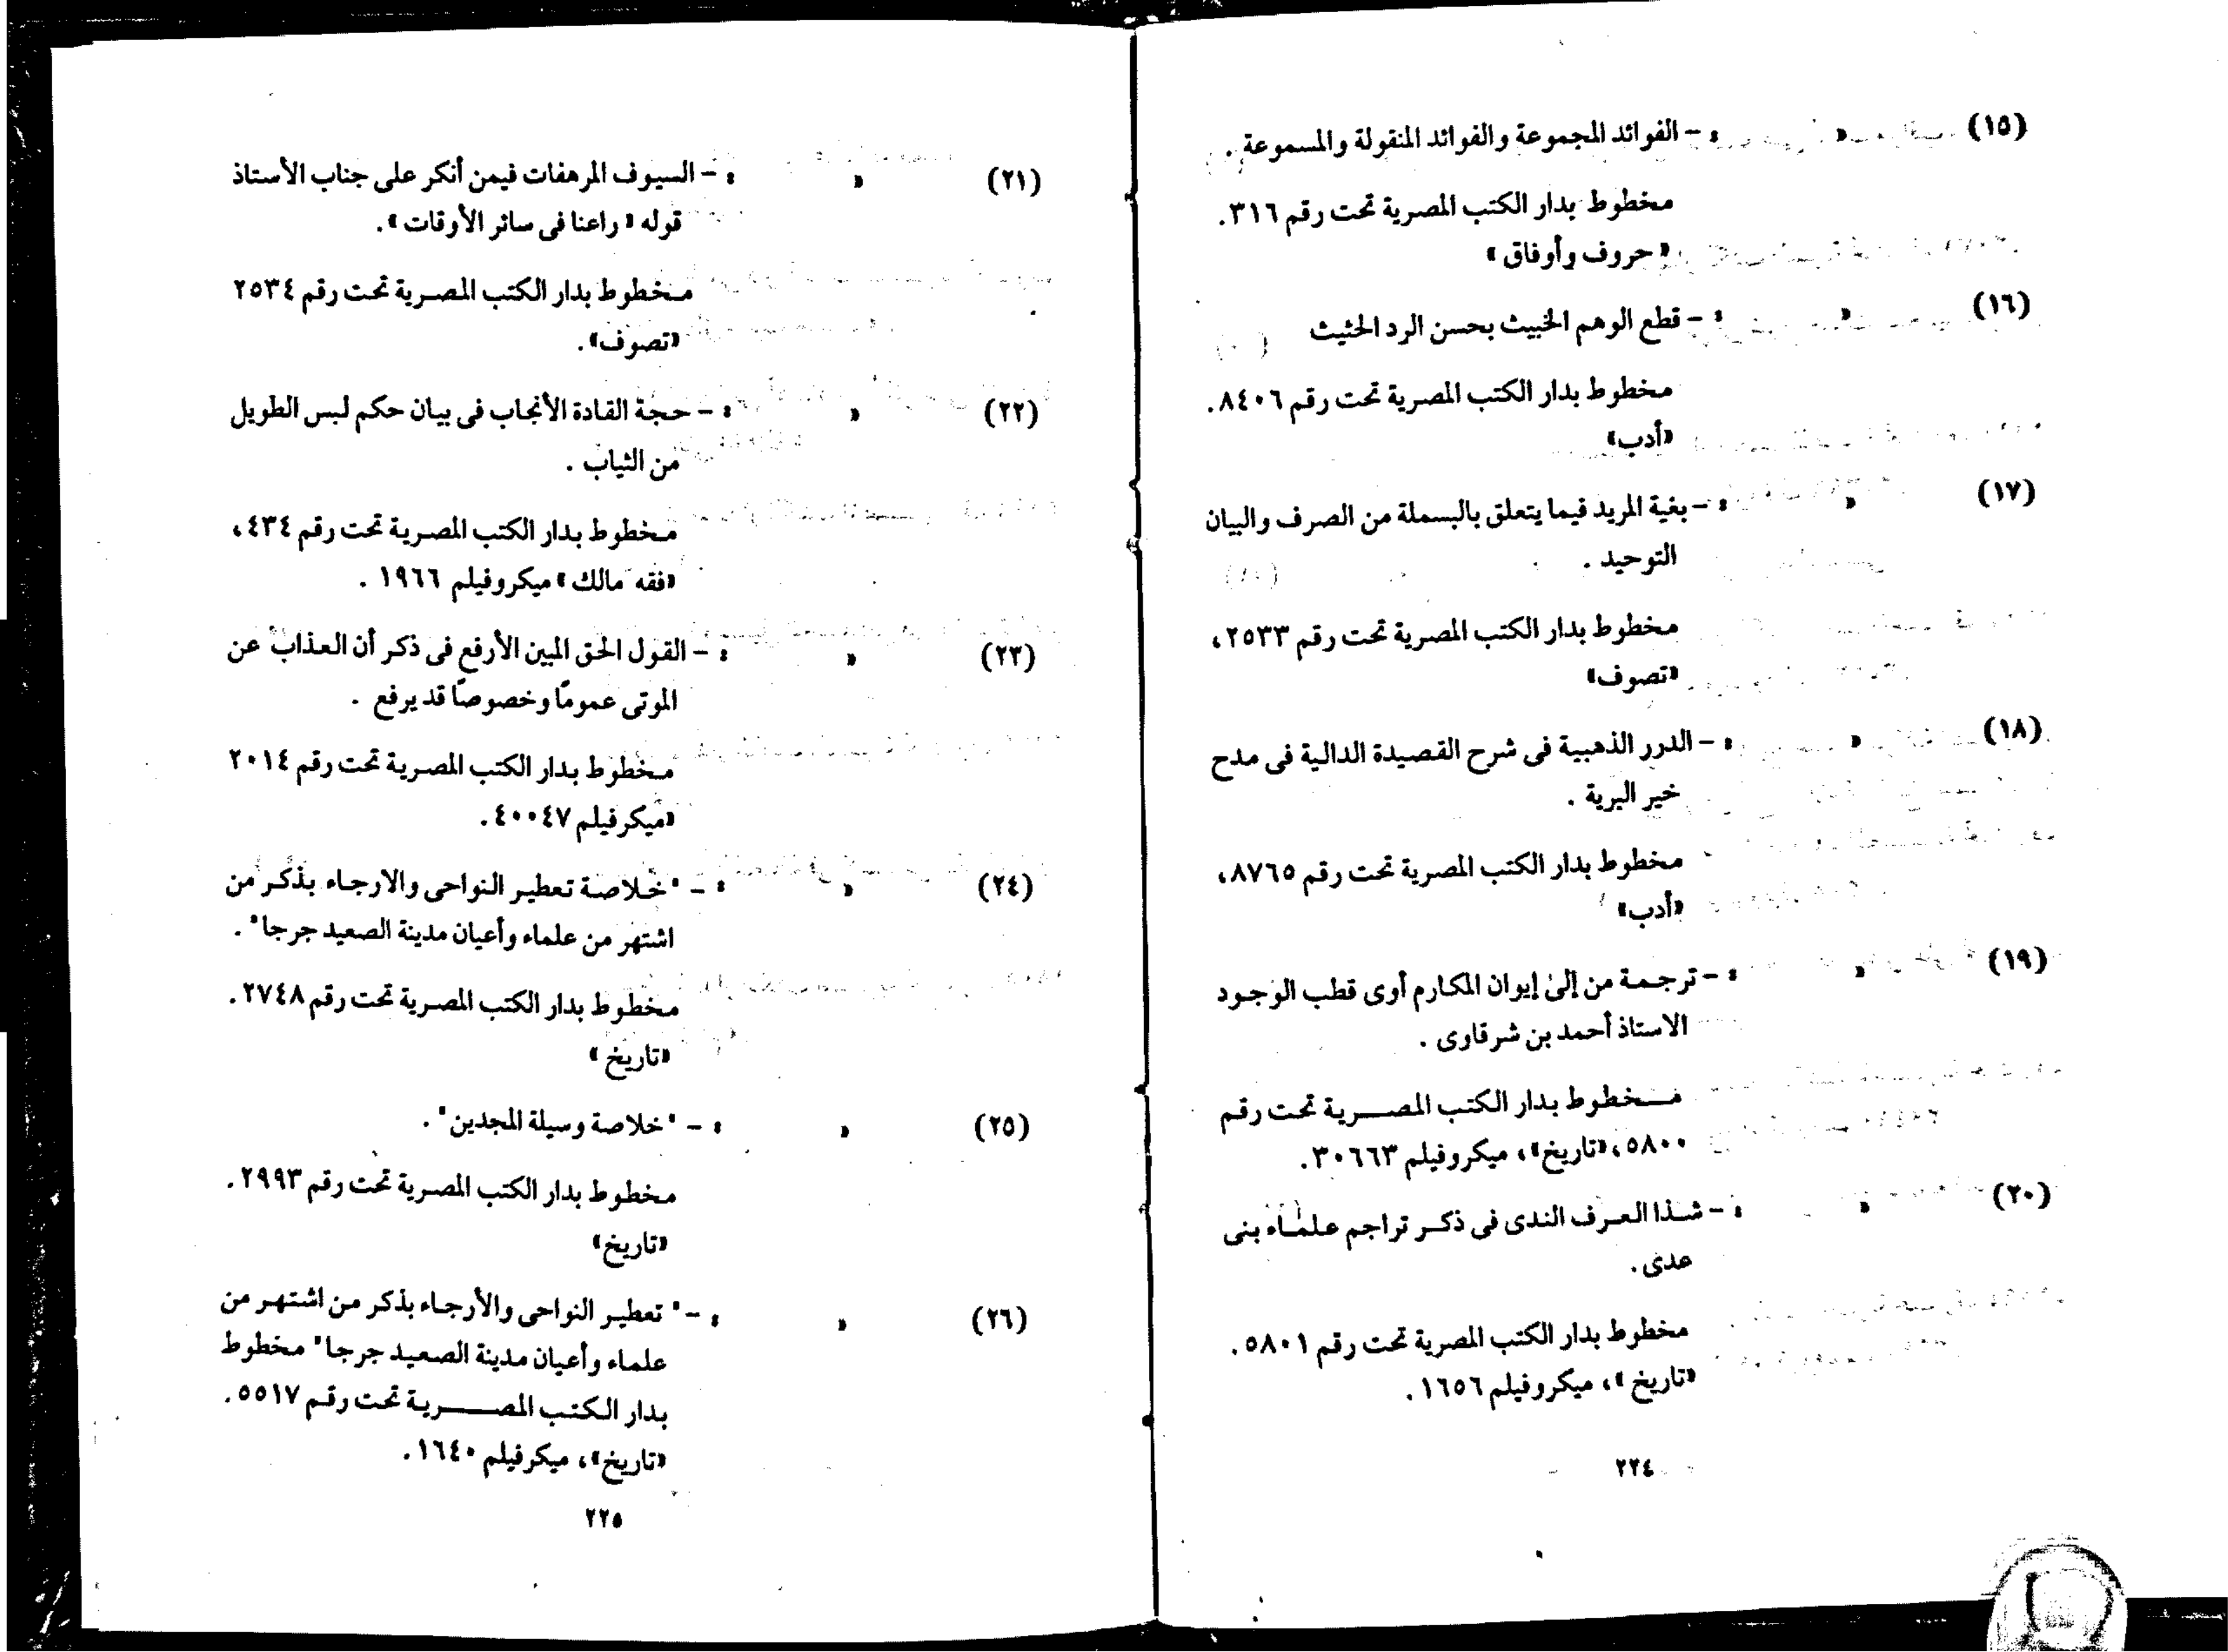 (١٥) » : - الفوائد المجموعة والفوائد المنقولة والمسموعة .
مخطوط بدار الكتب المصرية تحت رقم ٣١٦.
« حروف وأوفاق »
(١٦) » : - قطع الوهم الخبيث بحسن الرد الحثيث
مخطوط بدار الكتب المصرية تحت رقم ٨٤٠٦.
«أدب»
(١٧) » : - بغية المريد فيما يتعلق بالبسملة من الصرف والبيان
التوحيد .
مخطوط بدار الكتب المصرية تحت رقم ٢٥٣٣،
«تصوف»
(١٨) » : - الدرر الذهبية فى شرح القصيدة الدالية فى مدح
خير البرية .
مخطوط بدار الكتب المصرية تحت رقم ٨٧٦٥،
«أدب»
(١٩) » : - ترجمة من إلى إيوان المكارم أوى قطب الوجود
الاستاذ أحمد بن شرقاوى .
مخطوط بدار الكتب المصرية تحت رقم
٥٨٠٠، «تاريخ»، ميكروفيلم ٣٠٦٦٣.
(٢٠) » : - شذا العرف الندى فى ذكر تراجم علماء بنى
عدى .
مخطوط بدار الكتب المصرية تحت رقم ٥٨٠١ .
«تاريخ »، ميكروفيلم ١٦٥٦ .
٢٢٤
(٢١) » : - السيوف المرهفات فيمن أنكر على جناب الأستاذ
قوله « راعنا فى سائر الأوقات ».
مخطوط بدار الكتب المصرية تحت رقم ٢٥٣٤
«تصوف».
(٢٢) » : - حجة القادة الأنجاب فى بيان حكم لبس الطويل
من الثياب .
مخطوط بدار الكتب المصرية تحت رقم ٤٣٤،
«فقه مالك» ميكروفيلم ١٩٦٦ .
(٢٣) » : - القول الحق المبين الأرفع فى ذكر أن العذاب عن
الموتى عمومًا وخصوصًا قد يرفع .
مخطوط بدار الكتب المصرية تحت رقم ٢٠١٤
«ميكرفيلم ٤٠٠٤٧.
(٢٤) » : - "خلاصة تعطير النواحى والارجاء بذكر من
اشتهر من علماء وأعيان مدينة الصعيد جرجا" .
مخطوط بدار الكتب المصرية تحت رقم ٢٧٤٨.
«تاريخ »
(٢٥) » : - "خلاصة وسيلة المجدين" .
مخطوط بدار الكتب المصرية تحت رقم ٢٩٩٣.
«تاريخ»
(٢٦) » : - " تعطير النواحى والأرجاء بذكر من اشتهر من
علماء وأعيان مدينة الصعيد جرجا" مخطوط
بدار الكتب المصرية تحت رقم ٥٥١٧.
«تاريخ»، ميكرفيلم ١٦٤٠ .
٢٢٥